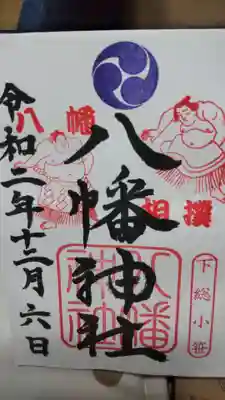 八幡
相撲
八幡神社
八幡神社
下総小笹
令和二年十二月六日